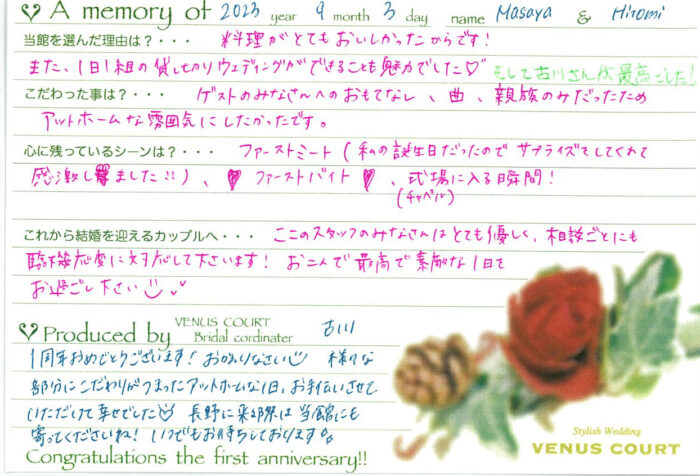 A memory of 2023 year 9 month 3 day name Masaya & Hiromi
当館を選んだ理由は？・・・ 料理がとてもおいしかったからです！
また、1日1組の貸し切りウェディングができることも魅力でした♡ そして古川さんが最高でした！
こだわった事は？・・・ ゲストのみなさんへのおもてなし、曲、親族のみだったため
アットホームな雰囲気にしたかったです。
心に残っているシーンは？・・・ ファーストミート(私の誕生日だったのでサプライズをしてくれて
感激しました!!)、♥ファーストバイト♥、式場に入る瞬間！
(チャペル)
これから結婚を迎えるカップルへ・・・ ここのスタッフのみなさんはとても優しく、相談ごとにも
臨機応変に対応して下さいます！ おこんで最高で素敵な1日を
お過ごし下さい
Produced by VENUS COURT Bridal cordinater 古川
1周年おめでとうございます！おかえりなさい 様々な
部分にこだわりがつまったアットホームな1日、お手伝いさせて
いただけて幸せでした 長野に来る際は当館にも
寄ってくださいね！いつでもお待ちしております。
Congratulations the first anniversary!!
Stylish Wedding
VENUS COURT